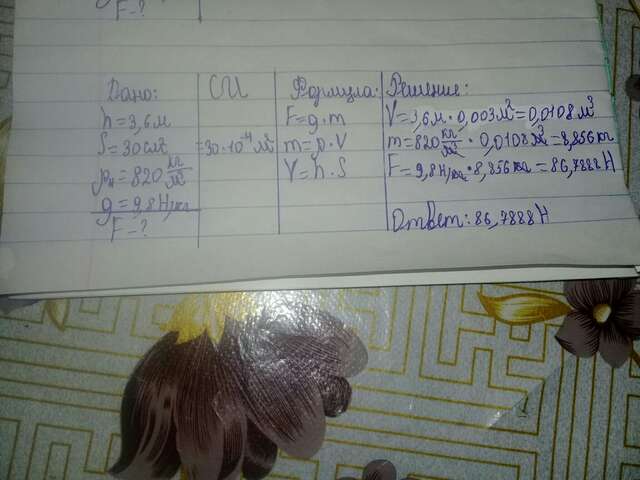 F - ?
Дано:
h = 3,6 м
S = 30 см²
ρн = 820 кг/м³
g = 9,8 Н/кг
F - ?
СИ
= 30 · 10⁻⁴ м²
Формула:
F = g · m
m = ρ · V
V = h · S
Решение:
V = 3,6 м · 0,003 м² = 0,0108 м³
m = 820 кг/м³ · 0,0108 м³ = 8,856 кг
F = 9,8 Н/кг · 8,856 кг = 86,7888 Н
Ответ: 86,7888 Н